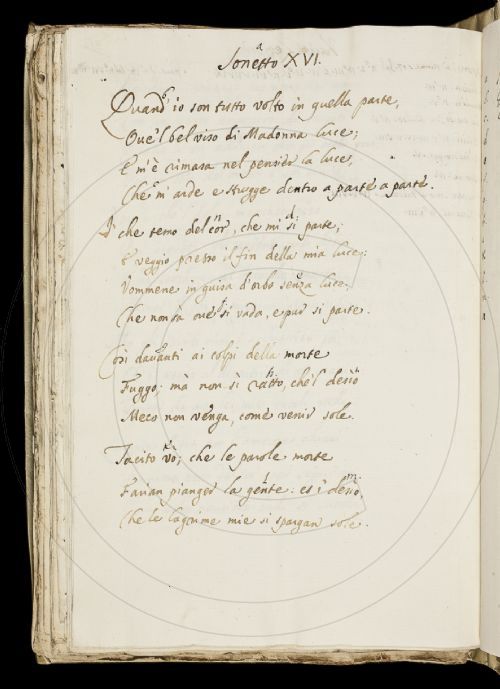 Sonetto XVI.
Quand' io son tutto volto in quella parte,
Ove 'l bel viso di Madonna luce;
E m'è rimasa nel pensier la luce,
Che m'arde e strugge dentro a parte a parte.
I' che temo del cor, che mi si parte;
E veggio presso il fin della mia luce:
Vommene in guisa d'orbo senza luce,
Che non sà ove si vada, e pur si parte.
Così davanti ai colpi della morte
Fuggo; mà non sì ratto, che 'l desio
Meco non venga, come venir sole.
Tacito vò; che le parole morte
Farian pianger la gente: et i' desio,
Che le lagrime mie si spargan sole.